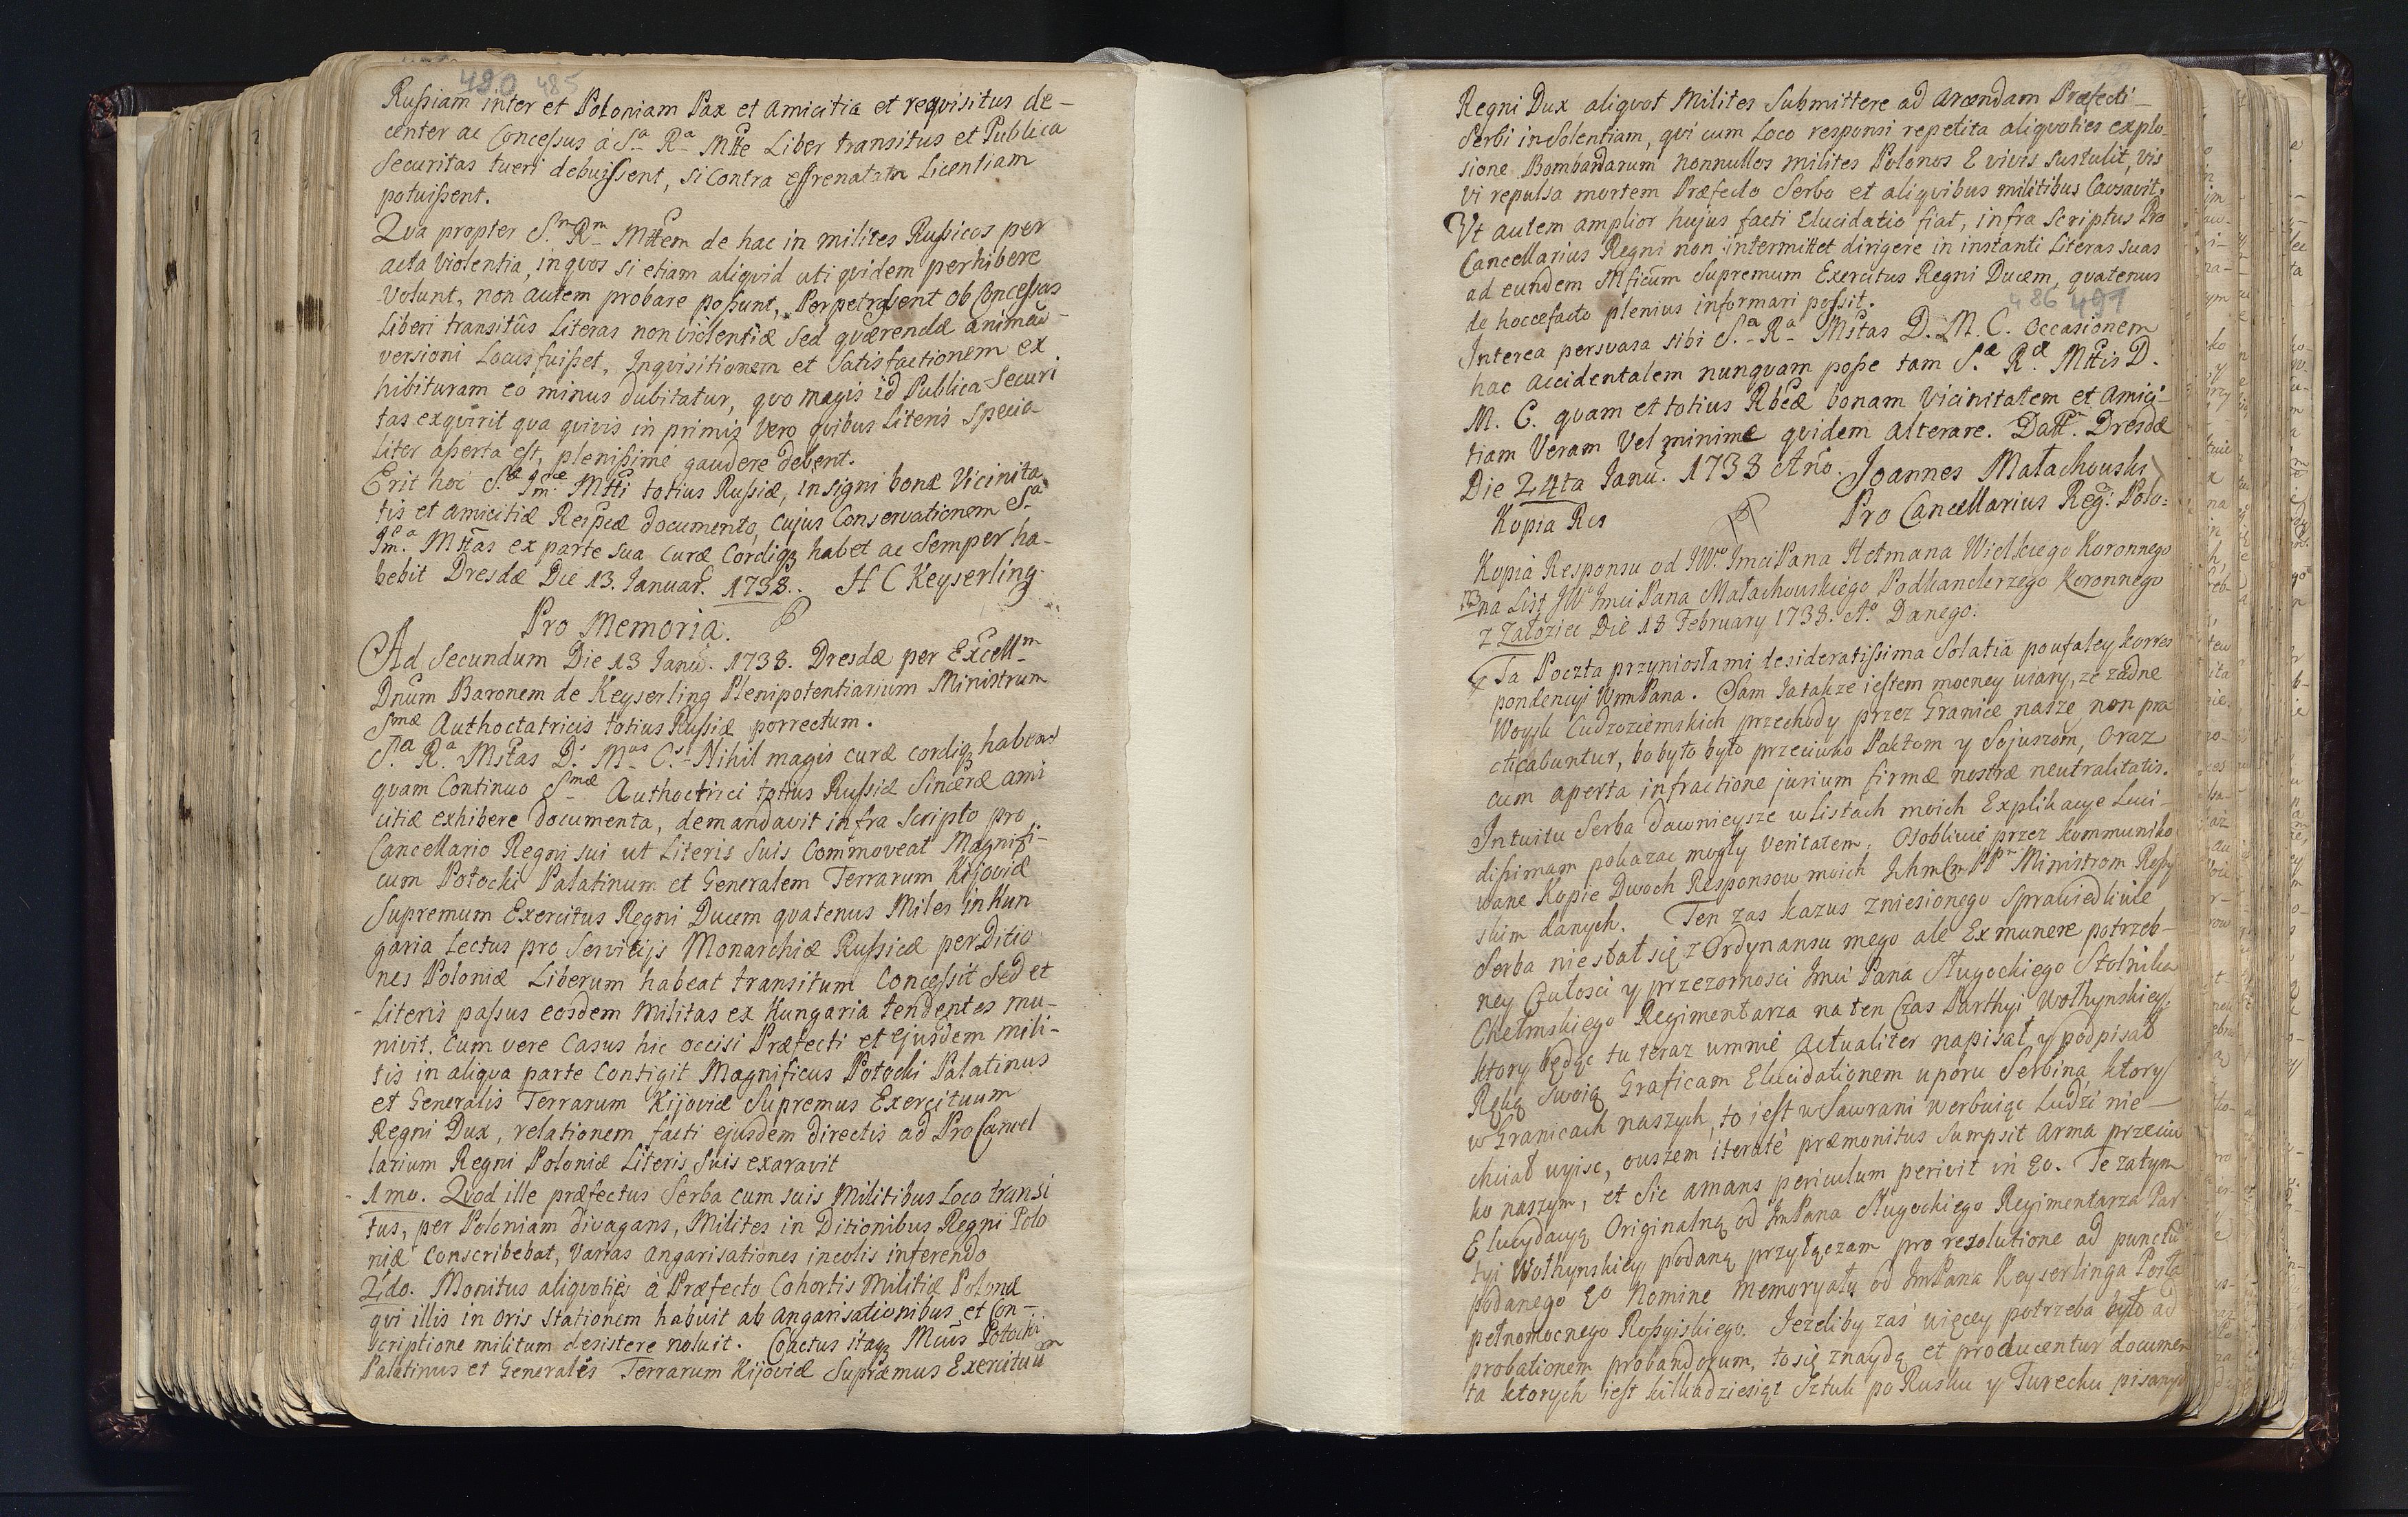 490 485
Rußiam inter et Poloniam Pax et amicitia et reqvisitus de-
center ac Conceßus á Sa Ra Mtte Liber transitus et Publica
Securitas tueri debuißent, si Contra effrenatam Licentiam
potuißent.
Qva propter Sm Rm Mttem de hac in milites Rußicos per
acta Violentia, in qvos si etiam aliqvid uti qvidem perhibere
Volunt, non autem probare poßunt, Perpetraßent ob Conceßas
Liberi transitûs Literas non violentiæ Sed qværendæ animad-
versioni Locus fuißet, Inqvisitionem et Satisfactionem ex
hibituram eo minus dubitatur, qvo magis id Publica Securi
tas exqvirit qva qvivis in primis Vero qvibus Literis Specia
liter aßerta est, plenißime gaudere debent.
Erit hoc Sæ Imæ Mtti totius Rußiæ, insigni bonæ Vicinita
tis et amicitiæ Respcæ documento, Cujus Conservationem Sa
Imea Mttas ex parte sua curæ Cordiqz habet ac Semper ha-
bebit Dresdæ Die 13. Januar. 1738. H C Keyserling
Pro Memoria.
Ad Secundum Die 13 Janu. 1738. Dresdæ per Excellm
Dnum Baronem de Keyserling Plenipotentiarium Ministrum
Smæ Authoctatricis totius Rußiæ porrectum.
Sa Ra Mstas Ds Mus Cs Nihil magis curæ cordiqz habens
qvam Continuo Smæ Authoctrici totius Rußiæ Sinceræ ami
citiæ exhibere documenta, demandavit infra Scripto pro
Cancellario Regni sui ut Literis Suis Commoveat Magnifi-
cum Potocki Palatinum et Generalem Terrarum Kijoviæ
Supremum Exercitus Regni Ducem qvatenus Miles in Hun
garia Lectus pro Servitijs Monarchiæ Rußicæ per Ditio
nes Poloniæ Liberum habeat transitum Conceßit Sed et
Literis paßus eosdem Militas ex Hungaria tendentes mu-
nivit. Cum vere Casus hic occisi Præfecti et ejusdem mili-
tis in aliqva parte Contigit Magnificus Potocki Palatinus
et Generalis Terrarum Kijoviæ Supremus Exercituum
Regni Dux, relationem facti ejusdem directis ad Pro Cancel
larium Regni Poloniæ Literis Suis exaravit
1mo. Qvod ille præfectus Serba cum suis Militibus Loco transi
tus, per Poloniam divagans, Milites in Ditionibus Regni Polo
niæ Conscribebat, Varias angarisationes incolis inferendo
2do. Monitus aliqvoties à Præfecto Cohortis Militiæ Polonæ
qvi illis in oris Stationem habuit ab angarisationibus et Con-
scriptione militum desistere noluit. Coactus itaqz Mcus Potocki
Palatinus et Generales Terrarum Kijoviæ Supræmus Exercituum
Regni Dux aliqvot Milites Submittere ad arcendam Præfecti-
Serbi insolentiam, qvi cum Loco responsi repetita aliqvoties explo
sione Bombardarum nonnullos milites Polonos E vivis sustulit, vis
vi repulsa mortem Præfecto Serbo et aliqvibus militibus Causavit.
Vt autem amplior hujus facti Elucidatio fiat, infra Scriptus Pro
Cancellarius Regni non intermittet dirigere in instanti Literas suas
ad eundem Mficum Supremum Exercitus Regni Ducem, qvatenus
de hoccefacto plenius informari poßit.
486 491
Interea persvasa sibi Sa Ra Mstas D. M. C. occasionem
hac accidentalem nunqvam poße tam Sæ Ræ Mttis D.
M. C. qvam et totius Rbcæ bonam Vicinitatem et Amici-
tiam Veram Vel minime qvidem alterare. Datt. Dresdæ
Die 24ta Janu. 1738 Ano. Joannes Małachowski
Kopia Res Pro Cancellarius Reg: Polo:
Kopia Responsu od JWo Jmci Pana Hetmana Wielkiego Koronnego
na List JWo Jmci Pana Małachowskiego Podkanclerzego Koronnego
z Załoziec Die 18 February 1738. Ao Danego.
Ta Poczta przyniosła mi desideratißima Solatia poufałey korres
pondencyi WmPana. Sam Ja takze iestem mocney wiary, ze zadne
Woysk Cudzoziemskich przechody przez Granice nasze non pra
cticabuntur, bo było było przeciwko Paktom y Sojuszom, oraz
cum aperta infractione jurium firmæ nostræ neutralitatis.
Intuitu Serba dawnieysze w Listach moich Explikacye Luci-
dißimam pokazac mogły Veritatem, Osobliwie przez kommuniko
wane Kopie Dwoch Responsow moich Ministrom Roßy
skim danych. Ten zas kazus zniesionego Sprawiedliwie
Serba nie stał się z Ordynansu mego ale Ex munere potrzeb-
ney Czułosci y przezornosci Jmci Pana Sługockiego Stolnika
Chełmskiego Regimentarza na ten Czas Parthyi Wołhynskiey,
ktory będąc tu teraz u mnie actualiter napisał y podpisał
Ręką Swoią Graficam Elucidationem uporu Serbina, ktory
w Granicach naszych, to iest w Sawrani werbuiąc Ludzi nie-
chciał wyisc, owszem iteratè præmonitus Sumpsit arma przeciw
ko naszym, et Sic amans periculum perivit in Eo. Te zatym
Elucydacyą Originalną od JmPana Sługockiego Regimentarza Par
tyi Wołhynskiey podaną przyłączam pro rezolutione ad punctu
podanego Eo Nomine Memoryału od JmPana Keyserlinga Posła
pełnomocnego Roßyiskiego. Jezeliby zaś więcey potrzeba było ad
probationem probandorum, to się znaydą et producentur documen
ta ktorych iest kilkadziesiąt Sztuk po Rusku y Turecku pisanych